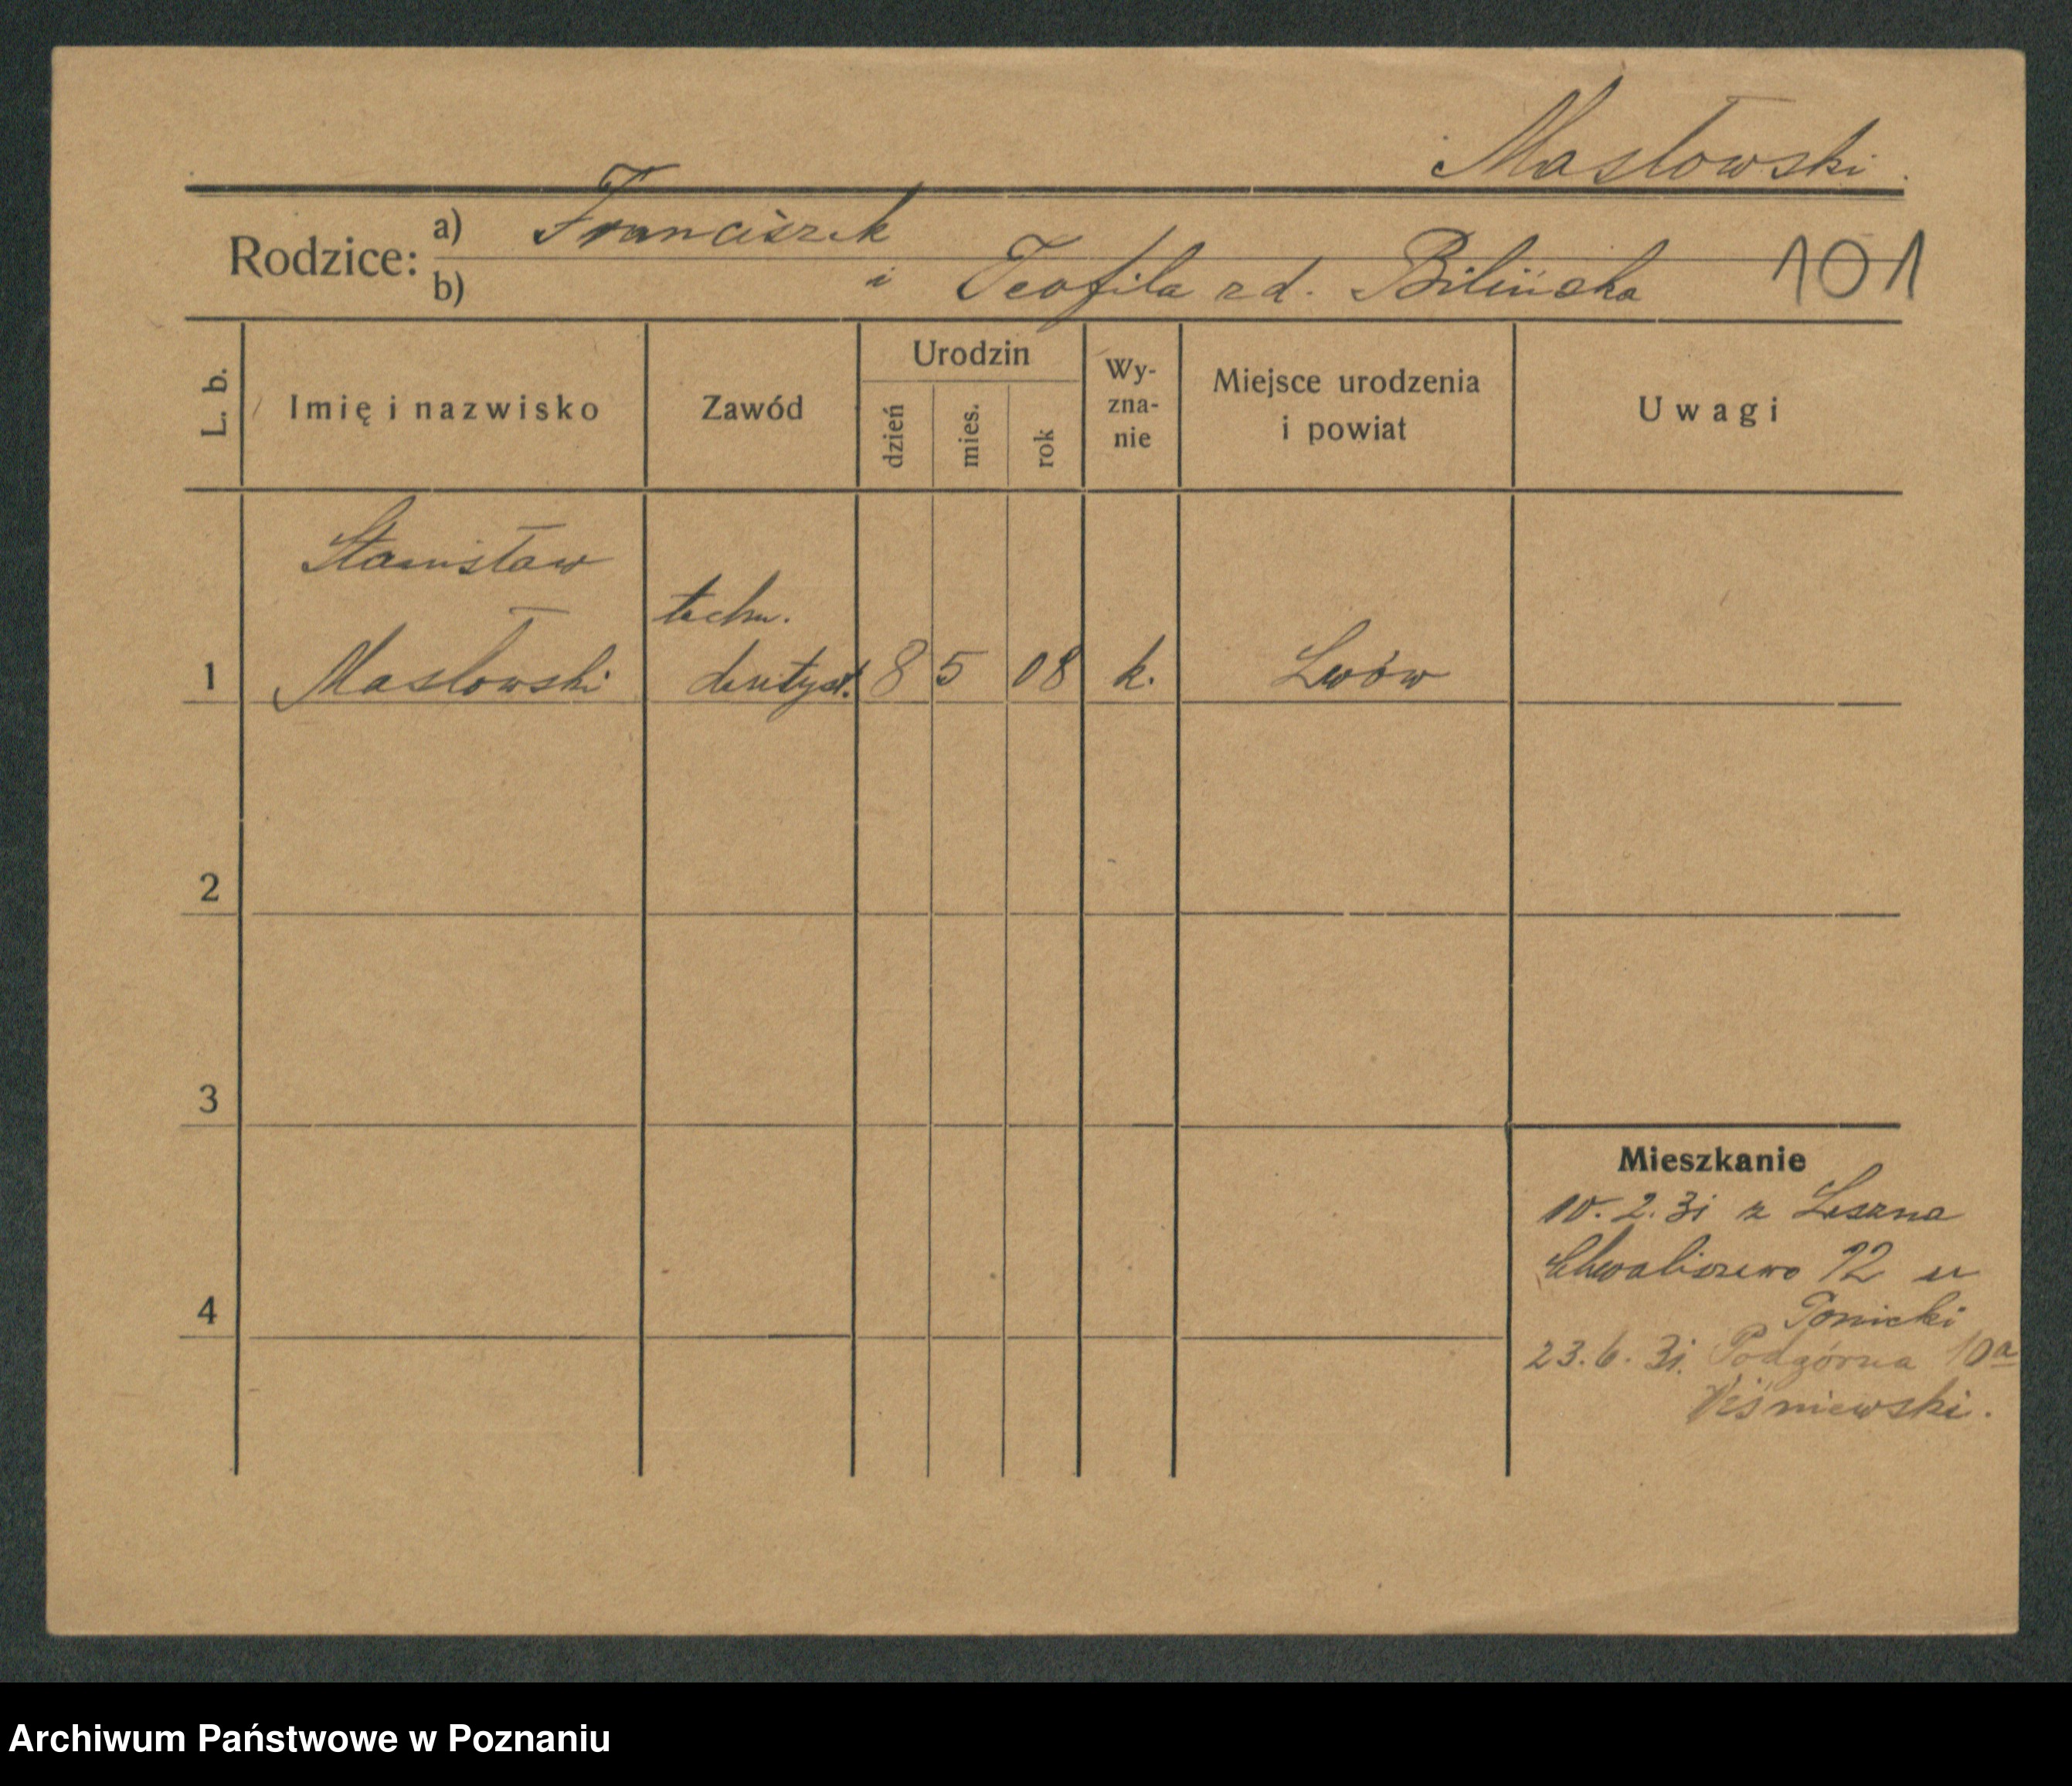 Masłowski.
Rodzice: a) Franciszek
b) i Teofila zd. Bilińska 101
L. b. Imię i nazwisko Zawód Urodzin dzień mies. rok Wyznanie Miejsce urodzenia i powiat Uwagi
Stanisław
techn.
1 Masłowski dentyst. 8 5 08 k. Lwów
2
3
Mieszkanie
10. 2. 31 z Leszna
Chwaliszewo 72 u
4
23. 6. 31. Podgórna 10a
Wiśniewski.
Archiwum Państwowe w Poznaniu